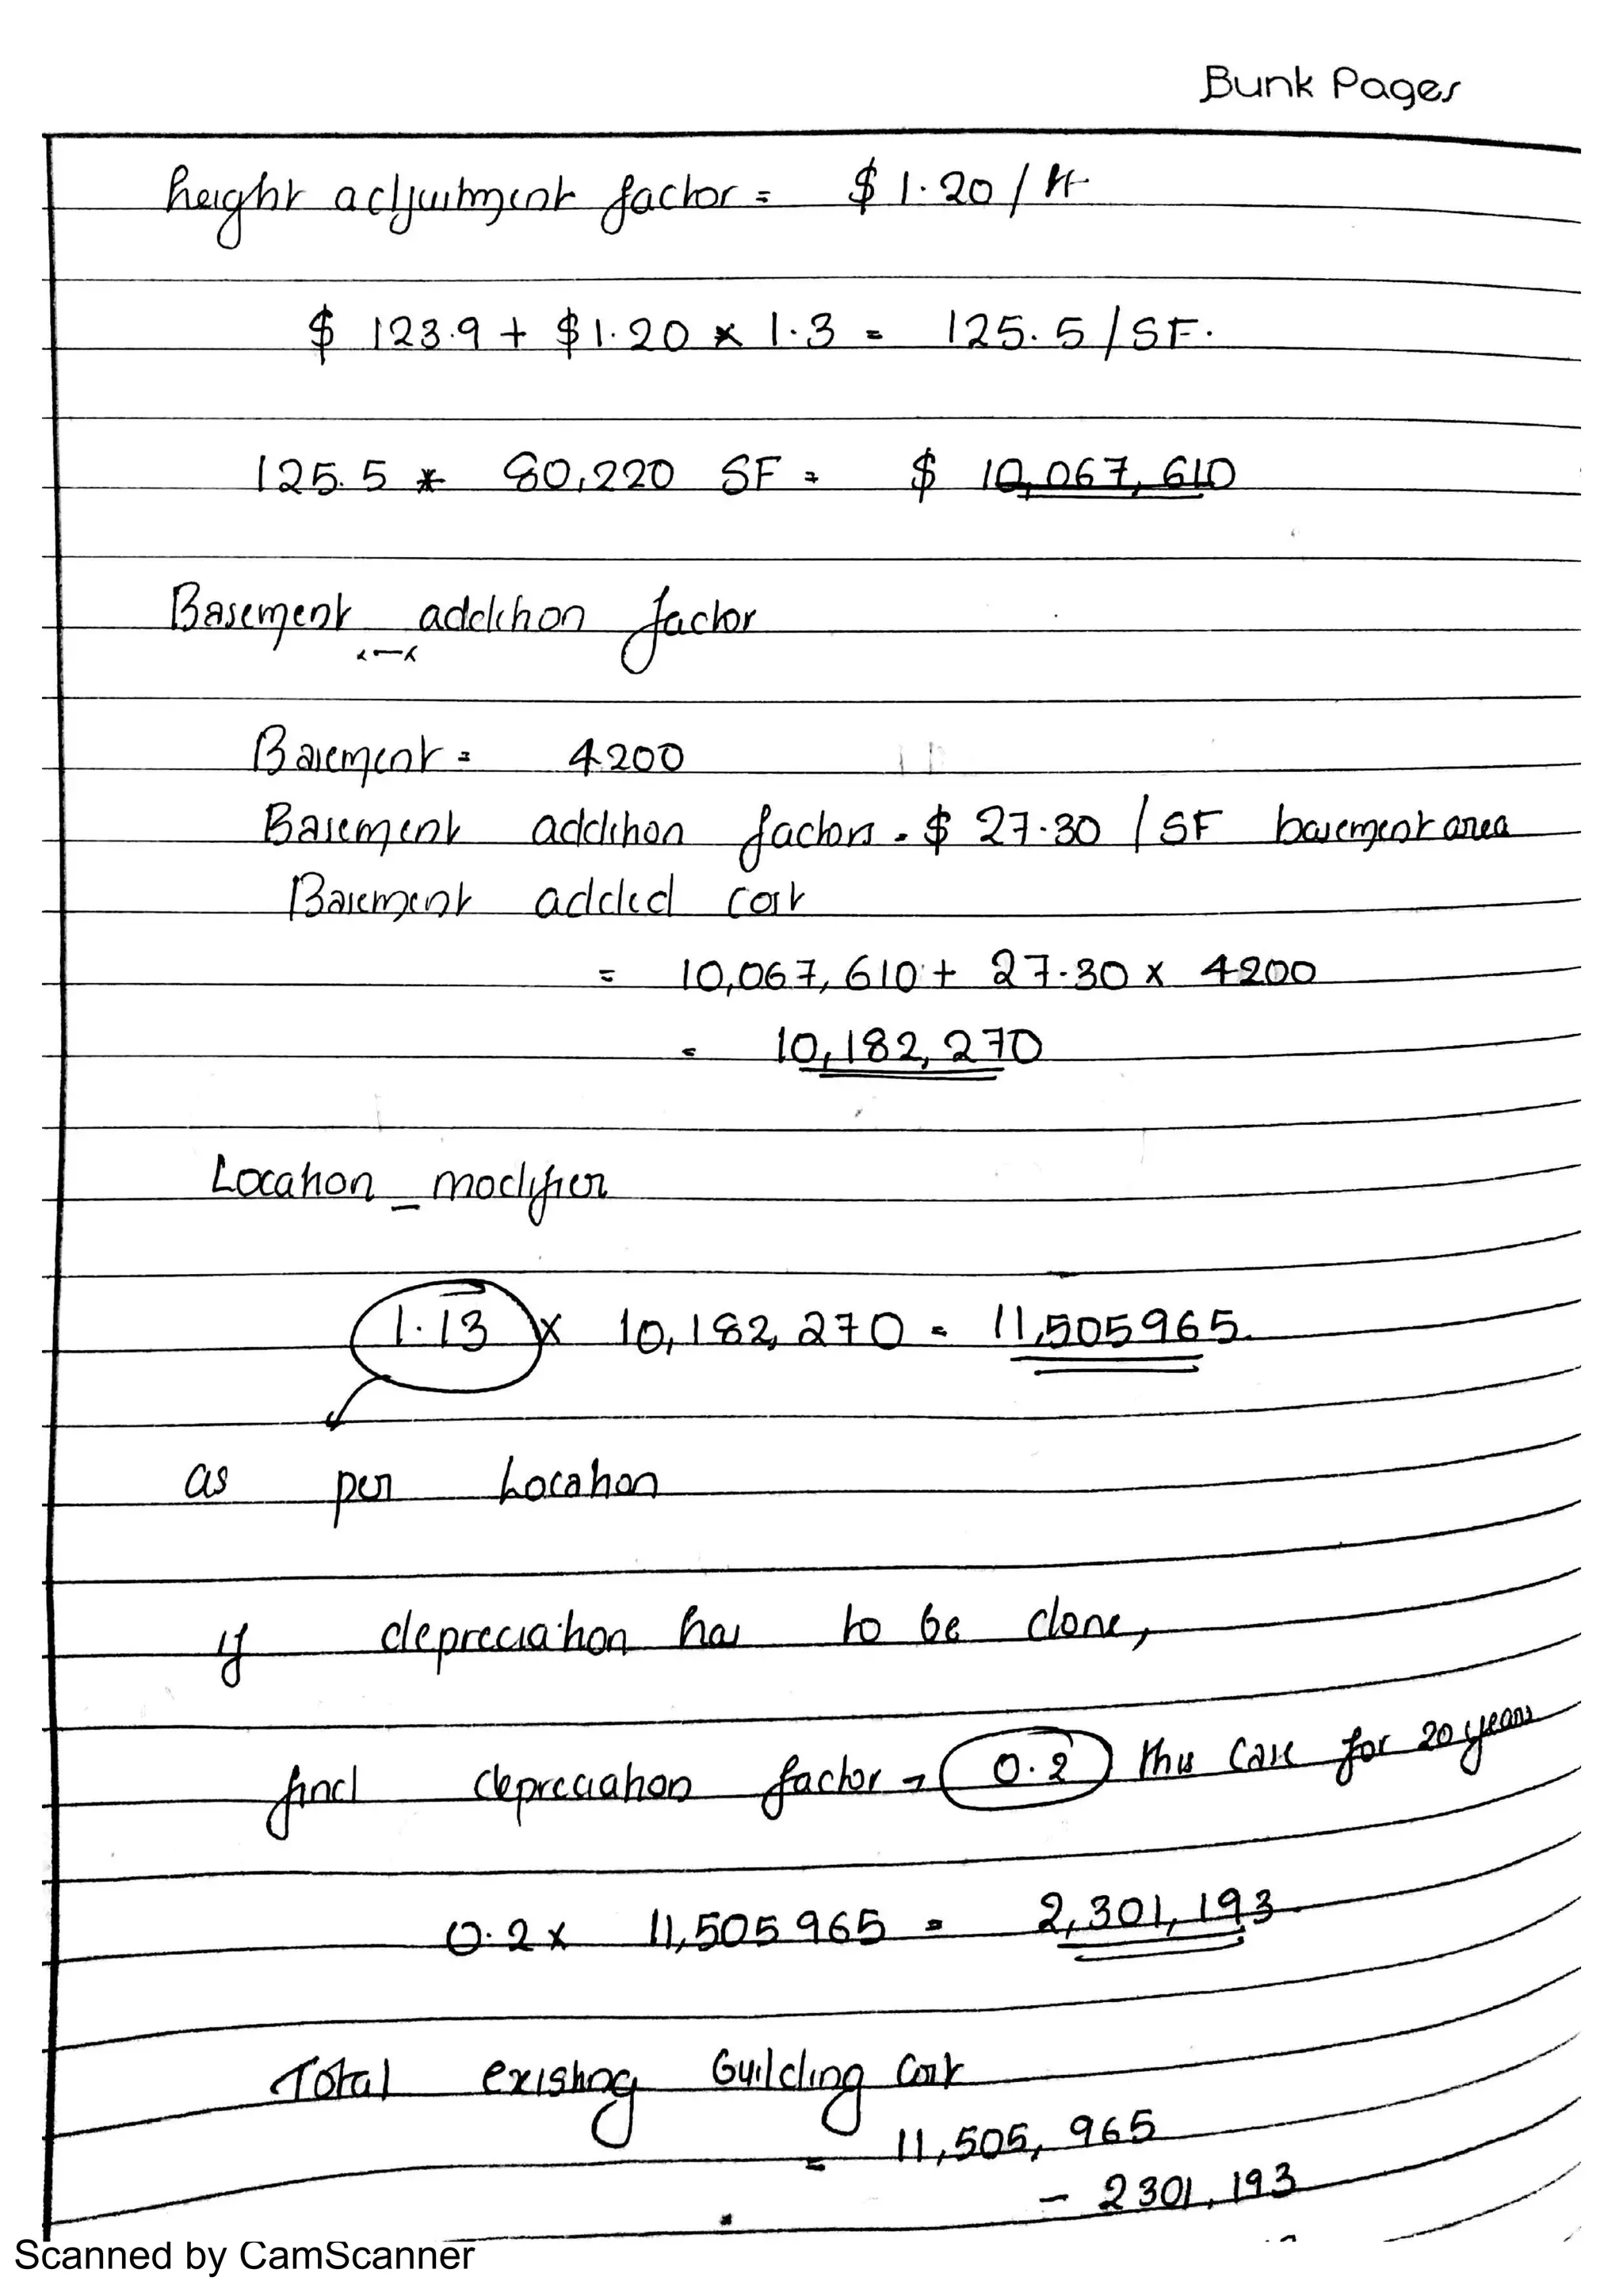 Bunk Pages
height adjustment factor = $ 1.20 / ft
$ 123.9 + $1.20 * 1.3 = 125.5 / SF.
125.5 * 80,220 SF = $ 10,067,610
Basement addition factor
Basement = 4200
Basement addition factors = $ 27.30 / SF basement area
Basement added cost
= 10,067,610 + 27.30 x 4200
= 10,182,270
Location modifier
1.13 x 10,182,270 = 11,505965.
as per Location
if depreciation has to be done,
find depreciation factor → 0.2 this case for 20 years
0.2 x 11,505965 = 2,301,193
Total existing building cost
= 11,505,965
- 2301,193
Scanned by CamScanner